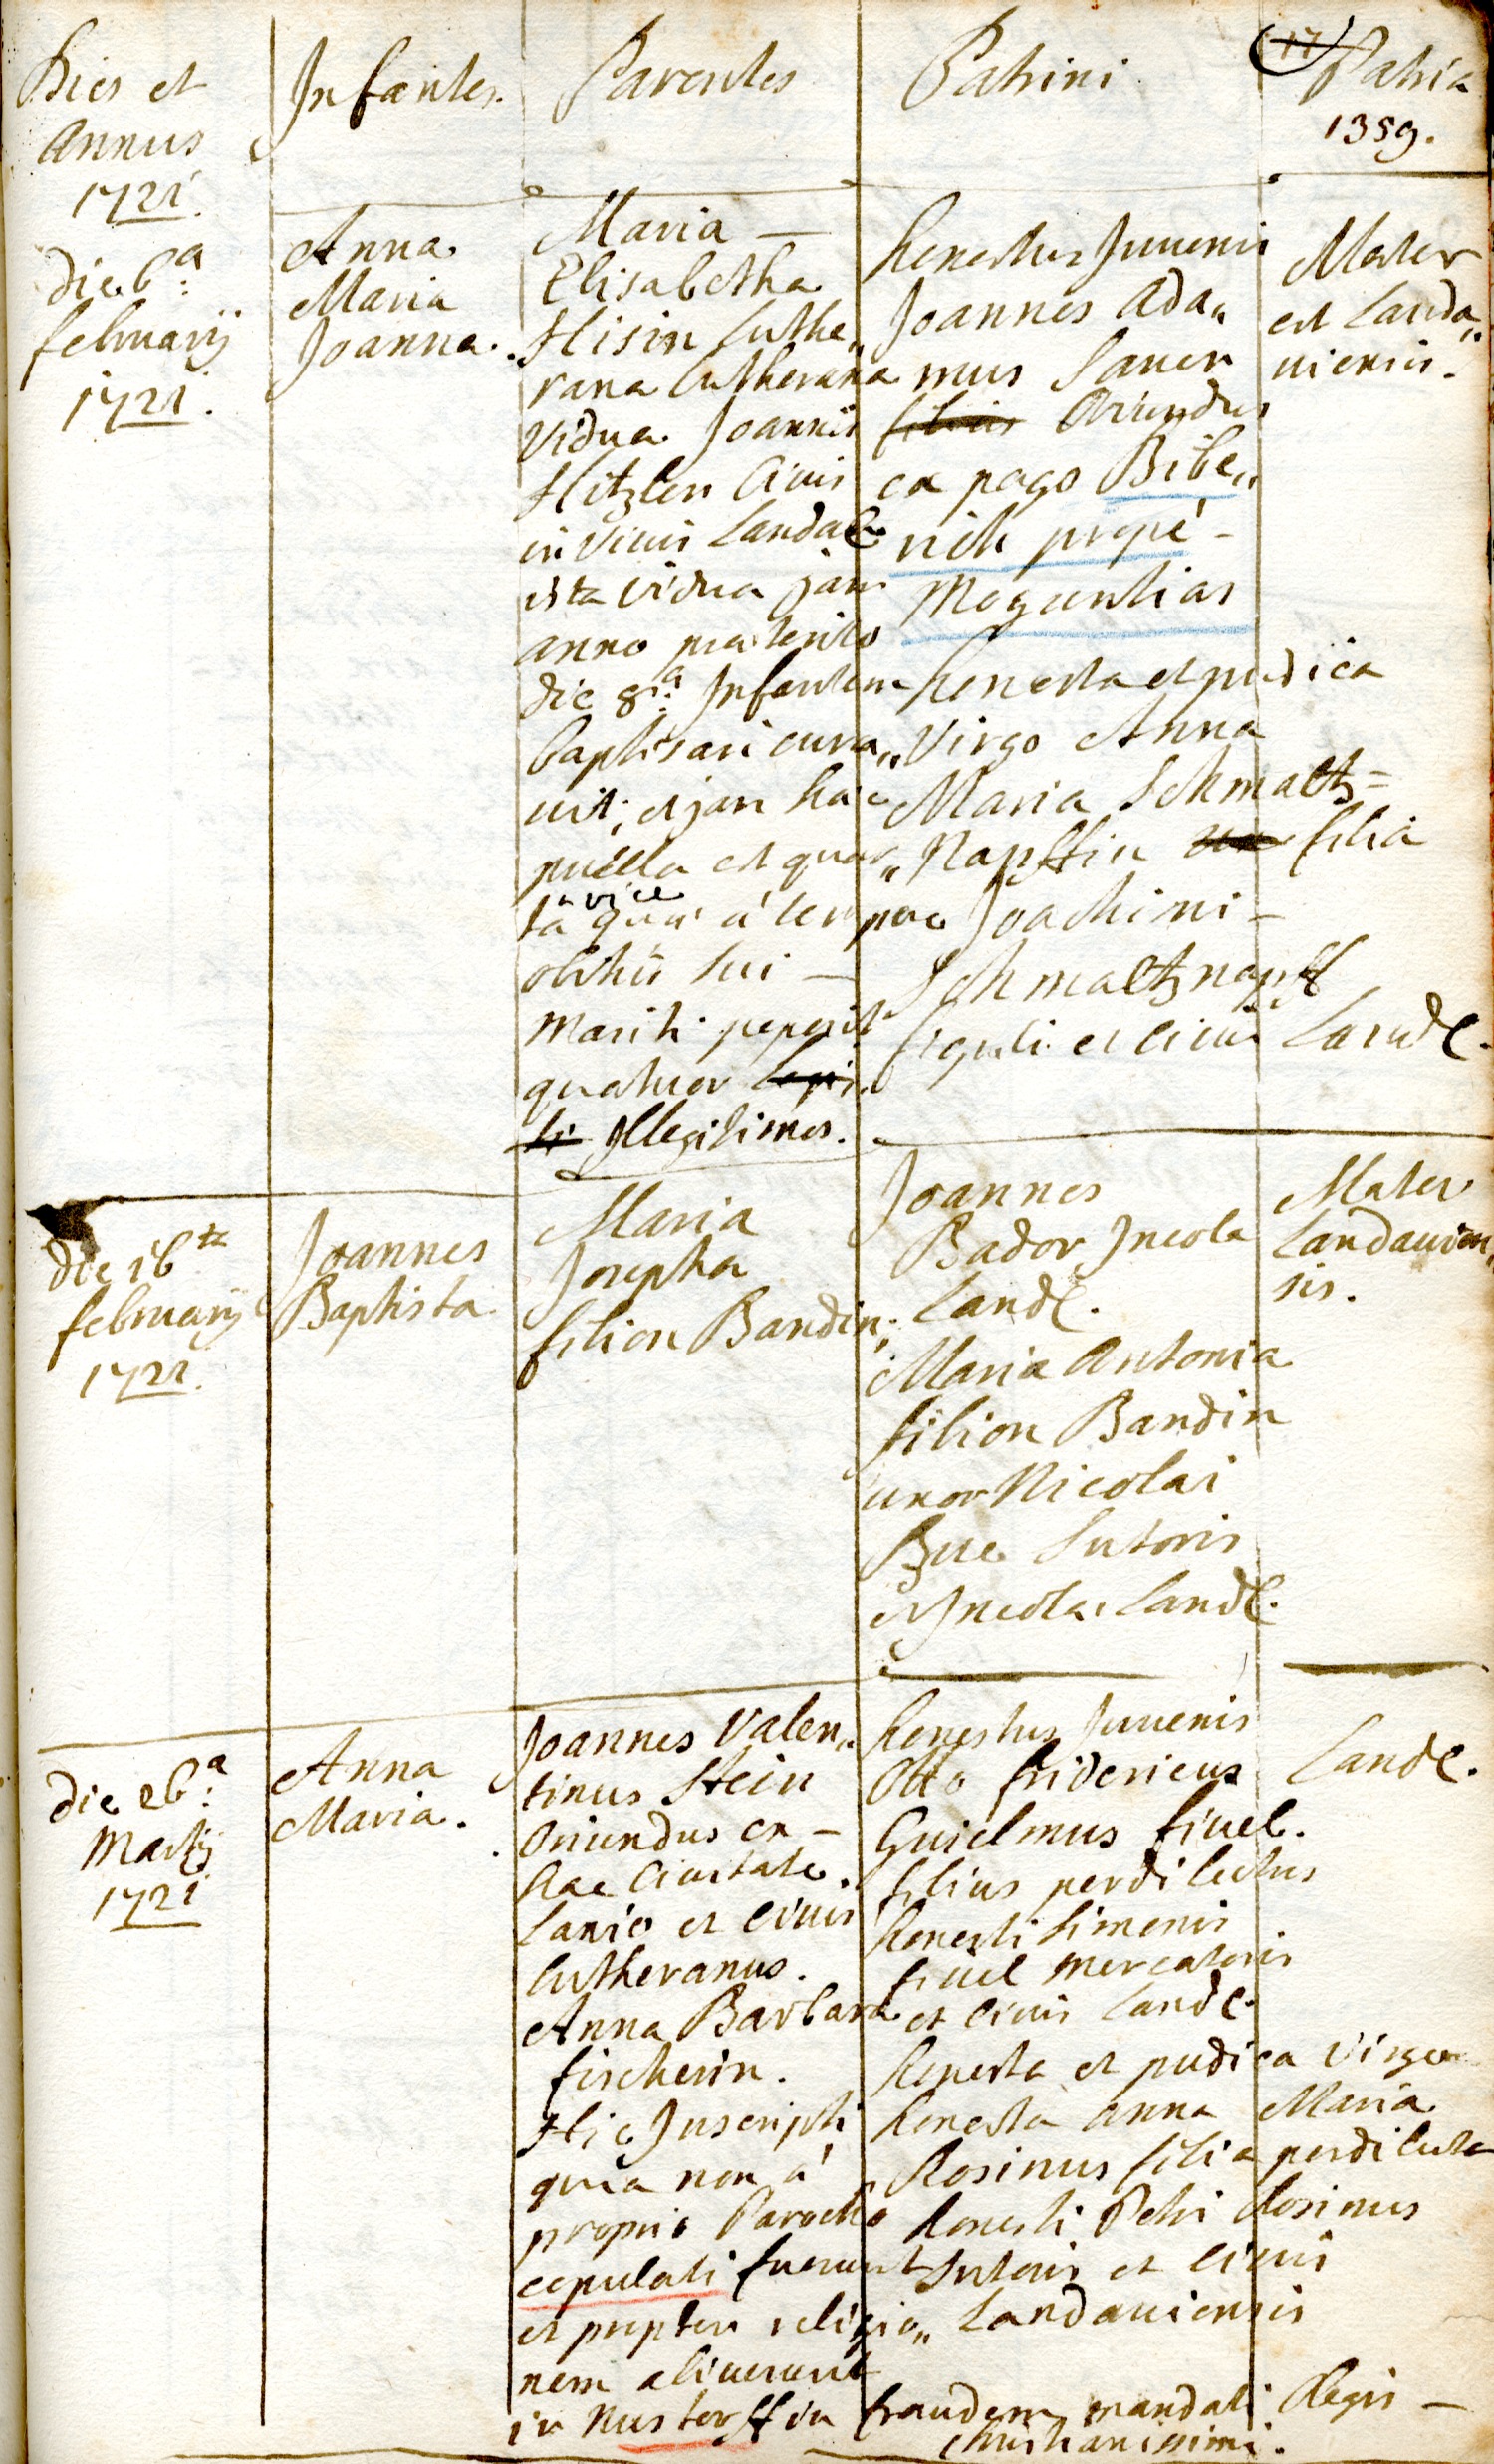 Dies et
Annus
1721.
Infantes.
Parentes
Patrini
17
Patria
1359.
die 6a:
februarij
1721.
Anna
Maria
Joanna.
Maria —
Elisabetha
Hisin Luthe„
rana Lutherana
Vidua Joannis
Hitzler Civis
in vivis Landae
ista vidua jam
anno praeterito
die 8va Infantem
baptisari cura„
vit; et jam haec
puella est quar„
ta vice
quae à tempore
obitûs sui —
Mariti peperit
quatuor legi
ti Illegitimos.
honestus Juvenis
Joannes Ada„
mus Sauer
filius Oriundus
ex pago Bibe„
rich propè -
Moguntias
honesta et pudica
Virgo Anna
Maria Schmaltz=
Napffin filia
Joachimi -
Schmaltznapff
figuli et civis Landt.
Mater
est Landa„
viensis.
die 16ta
februarij
1721.
Joannes
Baptista
Maria
Josepha
filion Bandin;
Joannes
Bador Incola
Landt.
Maria Antonia
filion Bandin
uxor Nicolai
Bue Sutoris
et Incolae Landt.
Mater
Landavien„
sis.
die 26a:
Martij
1721
Anna
Maria.
Joannes Valen„
tinus Stein
Oriundus ex -
hac Civitate.
Lanio et Civis
Lutheranus.
Anna Barbara
fischerin.
Hic Inscripti
quia non à
proprio Parocho
copulati fuerunt
et propter religio„
nem abiverunt
in Nustorff in fraudem mandati Regis —
Christianissimi.
honestus Juvenis
Otto fridericus
Guielmus fivel.
filius perdilectus
honesti Simonis
fivel mercatoris
et civis Landt.
honesta et pudica virgo
honesta Anna Maria
Rosinus filia perdilecta
honesti Petri Rosinus
Sutoris et Civis
Landaviensis
Landt.